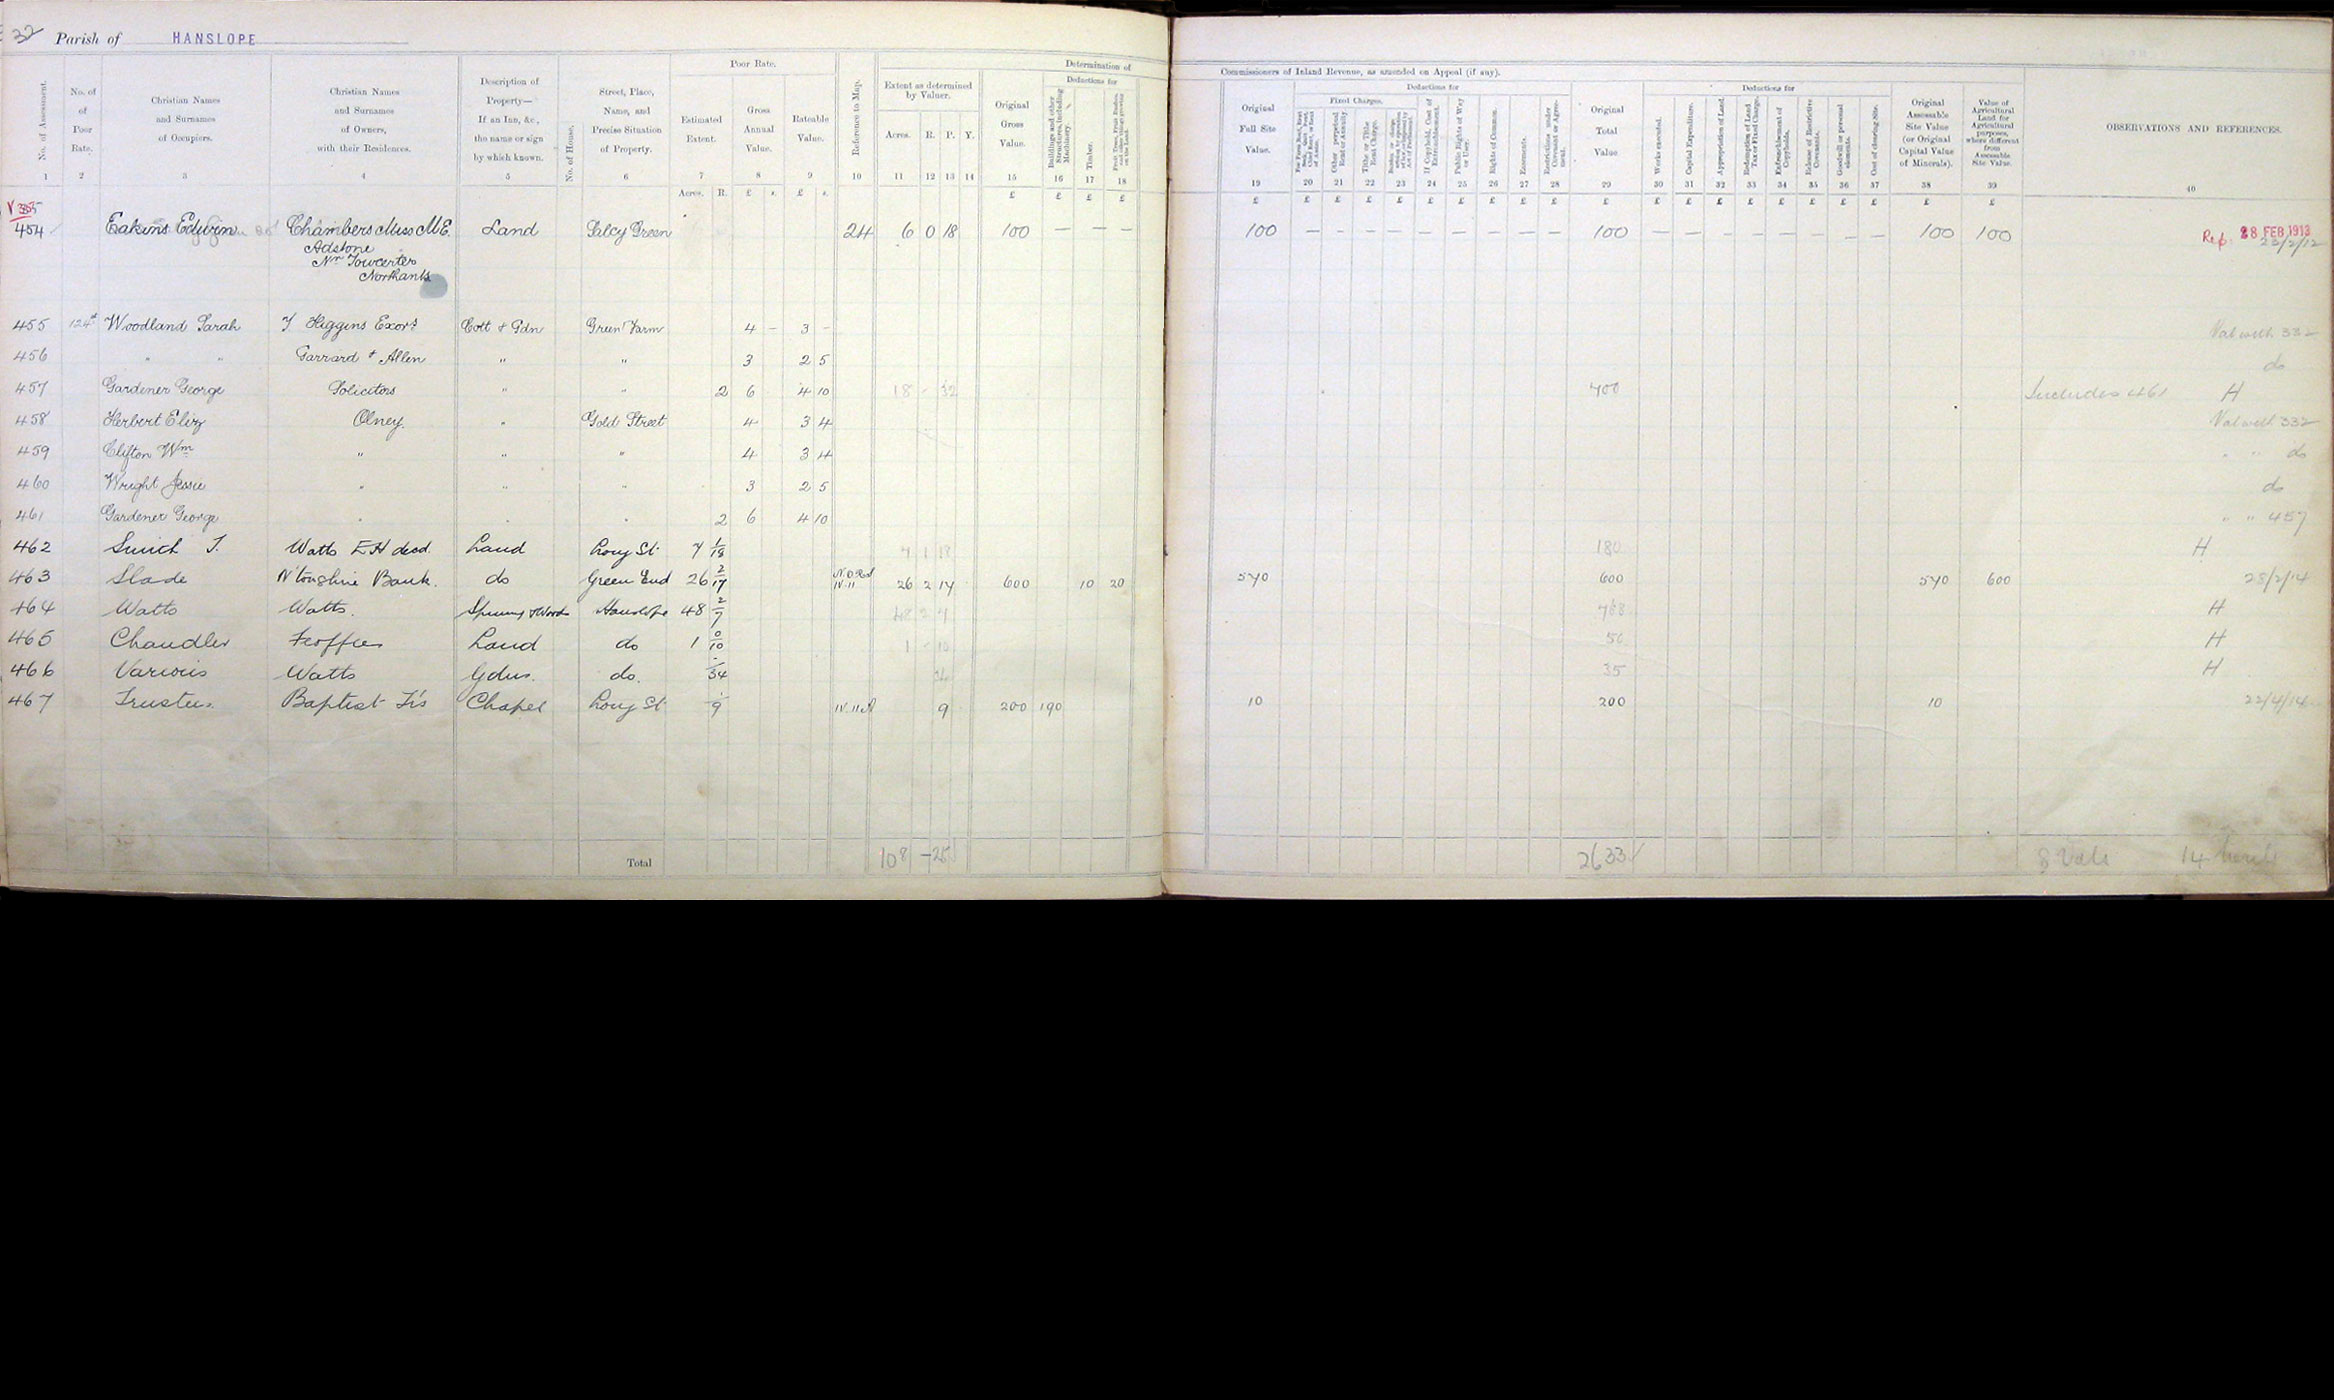 32 Parish of HANSLOPE
Poor Rate. Determination of Commissioners of Inland Revenue, as amended on Appeal (if any).
No. of Assessment. No. of Poor Rate. Christian Names and Surnames of Occupiers. Christian Names and Surnames of Owners, with their Residences. Description of Property— If an Inn, &c., the name or sign by which known. No. of House. Street, Place, Name, and Precise Situation of Property. Estimated Extent. Gross Annual Value. Rateable Value. Reference to Map. Extent as determined by Valuer. Acres. R. P. Y. Original Gross Value. Deductions for Buildings and other Structures, including Machinery. Timber. Fruit Trees, Fruit Bushes, and other things growing on the Land.
Original Full Site Value. Deductions for Fixed Charges. Other perpetual Rent or Annuity. Tithe or Tithe Rent Charge. If Copyhold, Cost of Enfranchisement. Public Rights of Way or User. Rights of Common. Easements. Restrictions under Covenant or Agreement. Original Total Value. Deductions for Works executed. Capital Expenditure. Appropriation of Land. Redemption of Land Tax or Fixed Charge. Enfranchisement of Copyholds. Release of Restrictive Covenants. Goodwill or personal elements. Cost of clearing Site. Original Assessable Site Value (or Original Capital Value of Minerals). Value of Agricultural Land for Agricultural purposes, where different from Assessable Site Value. OBSERVATIONS AND REFERENCES.
1 2 3 4 5 6 7 8 9 10 11 12 13 14 15 16 17 18 19 20 21 22 23 24 25 26 27 28 29 30 31 32 33 34 35 36 37 38 39 40
Acres. R. £ s. £ s. £ £ £ £ £ £ £ £ £ £ £ £ £ £ £ £ £ £ £ £ £ £ £ £ £
454 Eakins Edwin Chambers Miss M.E. Land Salcy Green 24 6 0 18 100 — — — 100 — — — — — — — — — 100 — — — — — — — — 100 100 Rep. 28 FEB 1913
Adstone
Nr Towcester
Northants
455 Woodland Sarah Higgins Exors Cott & Gdn Green Farm 4 - 3 - Val with 332
456 " " Garrard & Allen " " 3 2 5 do
457 Gardener George Solicitors " " 2 6 4 10 18 - 32 400 Includes 461 H
458 Herbert Eliz Olney. " Gold Street 4 3 4 Val with 332
459 Clifton Wm " " " 4 3 4 " " do
460 Wright Jesse " " " 3 2 5 do
461 Gardener George " " " 2 6 4 10 " " 457
462 Smith J. Watts E H decd. Land Long St 7 1/18 7 1 18 180 H
463 Slade N'tonshire Bank. do Green End 26 2/17 IV.11 26 2 17 600 10 20 570 600 570 600 28/2/14
464 Watts Watts. Spinneys & Woods Hanslope 48 2/7 48 2 7 H
465 Chandler Feoffees Land do 1 0/10 1 - 10 50 H
466 Various Watts Gdns. do. -/34 34 35 H
467 Trustees Baptist Trs Chapel Long St -/9 IV.11 A 9 200 190 10 200 10 22/4/14
Total 108 - 25 2633 8 Vals 14